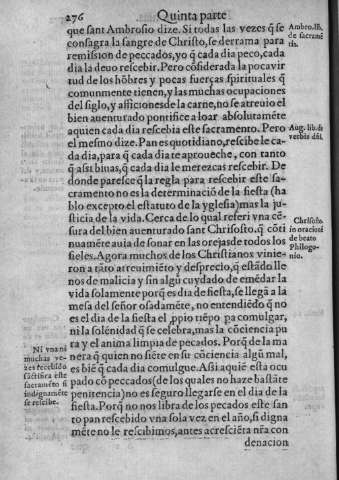 276 Quinta parte
que sant Ambrosio dize. Si todas las vezes q̃ se
consagra la sangre de Christo, se derrama para
remission de peccados, yo q̃ cada dia peco, cada
dia la deuo rescebir. Pero cõsiderada la poca vir
tud de los hõbres y pocas fuerças spirituales q̃
comunmente tienen, y las muchas ocupaciones
del siglo, y afficiones de la carne, no se atreuio el
bien auenturado pontifice a loar absolutamẽte
a quien cada dia rescebia este sacramento. Pero
el mesmo dize. Pan es quotidiano, rescibe le ca-
da dia, para q̃ cada dia te aproueche, con tanto
q̃ assi biuas, q̃ cada dia le merezcas rescebir. De
donde paresce q̃ la regla para rescebir este sa-
cramento no es la determinació de la fiesta (ha
blo excepto el estatuto de la yglesia) mas la ju-
sticia de la vida. Cerca de lo qual referi vna cẽ-
sura del bien auenturado sant Chrisosto. q̃ cõti
nua mẽte auia de sonar en las orejas de todos los
fieles. Agora muchos de los Christianos vinie-
ron a tãto atreuimiẽto y desprecio, q̃ estãdo lle
nos de malicia y sin algũ cuydado de emẽdar la
vida solamente porq̃ es dia de fiesta, se llegã a la
mesa del señor osadamẽte, no entendiẽdo q̃ no
es el dia de la fiesta el ꝓpio tiẽpo pa comulgar,
ni la solẽnidad q̃ se celebra, mas la cõciencia pu
ra y el anima limpia de pecados. Porq̃ de la ma
nera q̃ quien no siẽte en su cõciencia algũ mal,
es biẽ q̃ cada dia comulgue. Assi aquiẽ esta ocu
pado cõ peccados (de los quales no haze bastãte
penitencia) no es seguro llegarse en el dia de la
fiesta. Porq̃ no nos libra de los pecados este san
to pan rescebido vna sola vez en el año, si digna
mẽte no le rescibimos, antes acresciẽta nr̃a con
denacion
Ambro. lib.
de sacramẽ
tis.
Aug. lib. de
verbis dñi.
Chrisosto.
in oratione
de beato
Philogo-
nio.
Ni vna ni
muchas ve-
zes rescebido
este
sacramẽto si
indignamẽte
se rescibe.